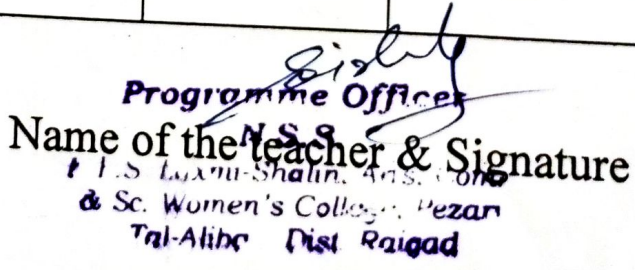 Programme Officer
N.S.S.
Name of the teacher & Signature
Laxmi-Shalin, Ans.
& Sc. Women's College, Pezari
Tal-Alibe Dist Raigad